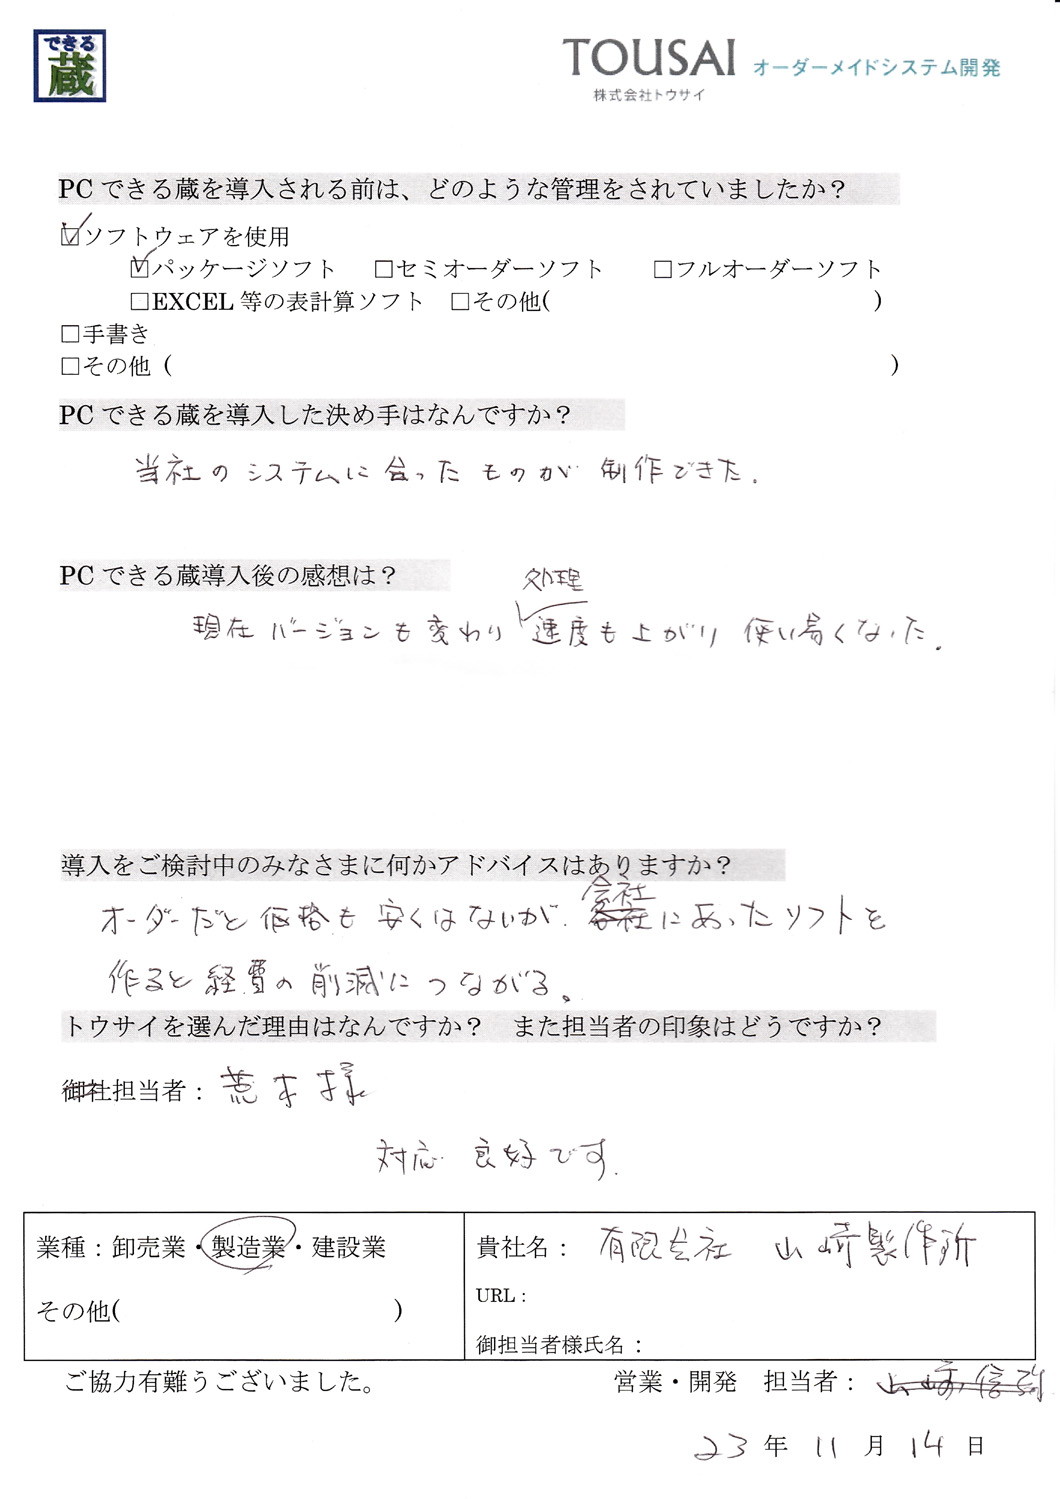 できる
蔵
TOUSAI オーダーメイドシステム開発
株式会社トウサイ
PCできる蔵を導入される前は、どのような管理をされていましたか？
☑ソフトウェアを使用
☑パッケージソフト □セミオーダーソフト □フルオーダーソフト
□EXCEL 等の表計算ソフト □その他( )
□手書き
□その他 ( )
PCできる蔵を導入した決め手はなんですか？
当社のシステムに合ったものが 制作できた.
PCできる蔵導入後の感想は？
処理
現在バージョンも変わり 速度も上がり 使い易くなった.
導入をご検討中のみなさまに何かアドバイスはありますか？
会社
オーダーだと価格も安くはないが. にあったソフトを
作ると経費の削減につながる。
トウサイを選んだ理由はなんですか？ また担当者の印象はどうですか？
御社担当者： 荒木様
対応 良好です.
業種：卸売業・製造業・建設業
その他( )
貴社名： 有限会社 山崎製作所
URL：
御担当者様氏名：
ご協力有難うございました。
営業・開発 担当者：
23 年 11 月 14 日